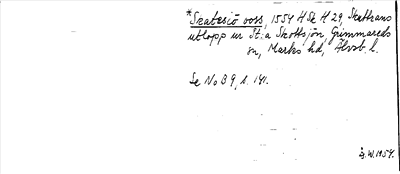 *Skatesiö voss, 1554 HSk H 29, Skattrans
utlopp ur St:a Skottsjön, Grimmareds
sn, Marks hd, Älvsb. l.
Se No B 9, s. 141.
G.W. 1954.